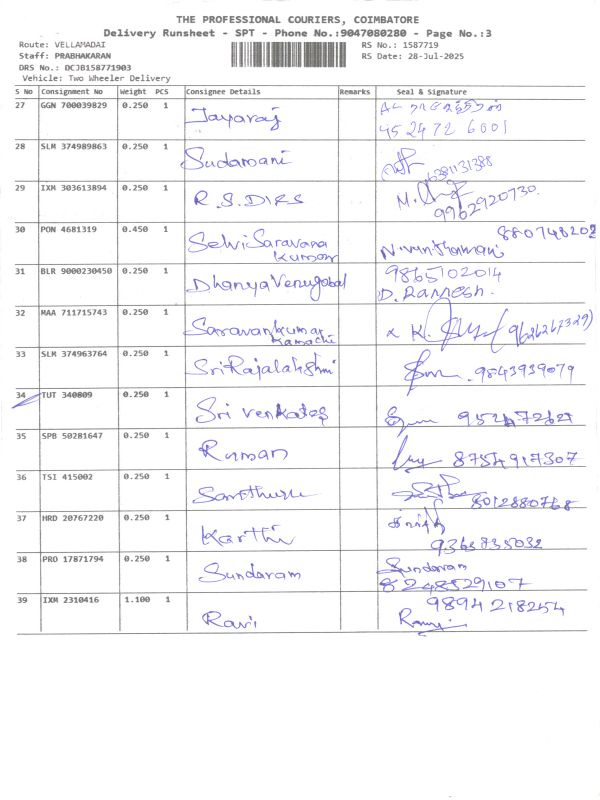 THE PROFESSIONAL COURIERS, COIMBATORE
Delivery Runsheet - SPT - Phone No.:9047080280 - Page No.:3
Route: VELLAMADAI RS No.: 1587719
Staff: PRABHAKARAN RS Date: 28-Jul-2025
DRS No.: DCJB158771903
Vehicle: Two Wheeler Delivery
S No Consignment No Weight PCS Consignee Details Remarks Seal & Signature
27 GGN 700039829 0.250 1 Jayaraj
95 2472 6001
28 SLM 374989863 0.250 1 Sudamani 6381131388
29 IXM 303613894 0.250 1 R.S.DIRS
9962920730.
30 PON 4681319 0.450 1 Selvi Saravana kumar 880748202
31 BLR 9000230450 0.250 1 Dhanya Venugobal 9865102014
D. Ramesh.
32 MAA 711715743 0.250 1 Saravankumar Kamachi
33 SLM 374963764 0.250 1 Sri Rajalakshmi 9843939079
34 TUT 340809 0.250 1 Sri venkates
35 SPB 50281647 0.250 1 Ruman 8754917307
36 TSI 415002 0.250 1 8012880768
37 HRD 20767220 0.250 1 Karthi
9365835032
38 PRO 17871794 0.250 1 Sundaram Sundaram
8248529107
39 IXM 2310416 1.100 1 Ravi 9894218254